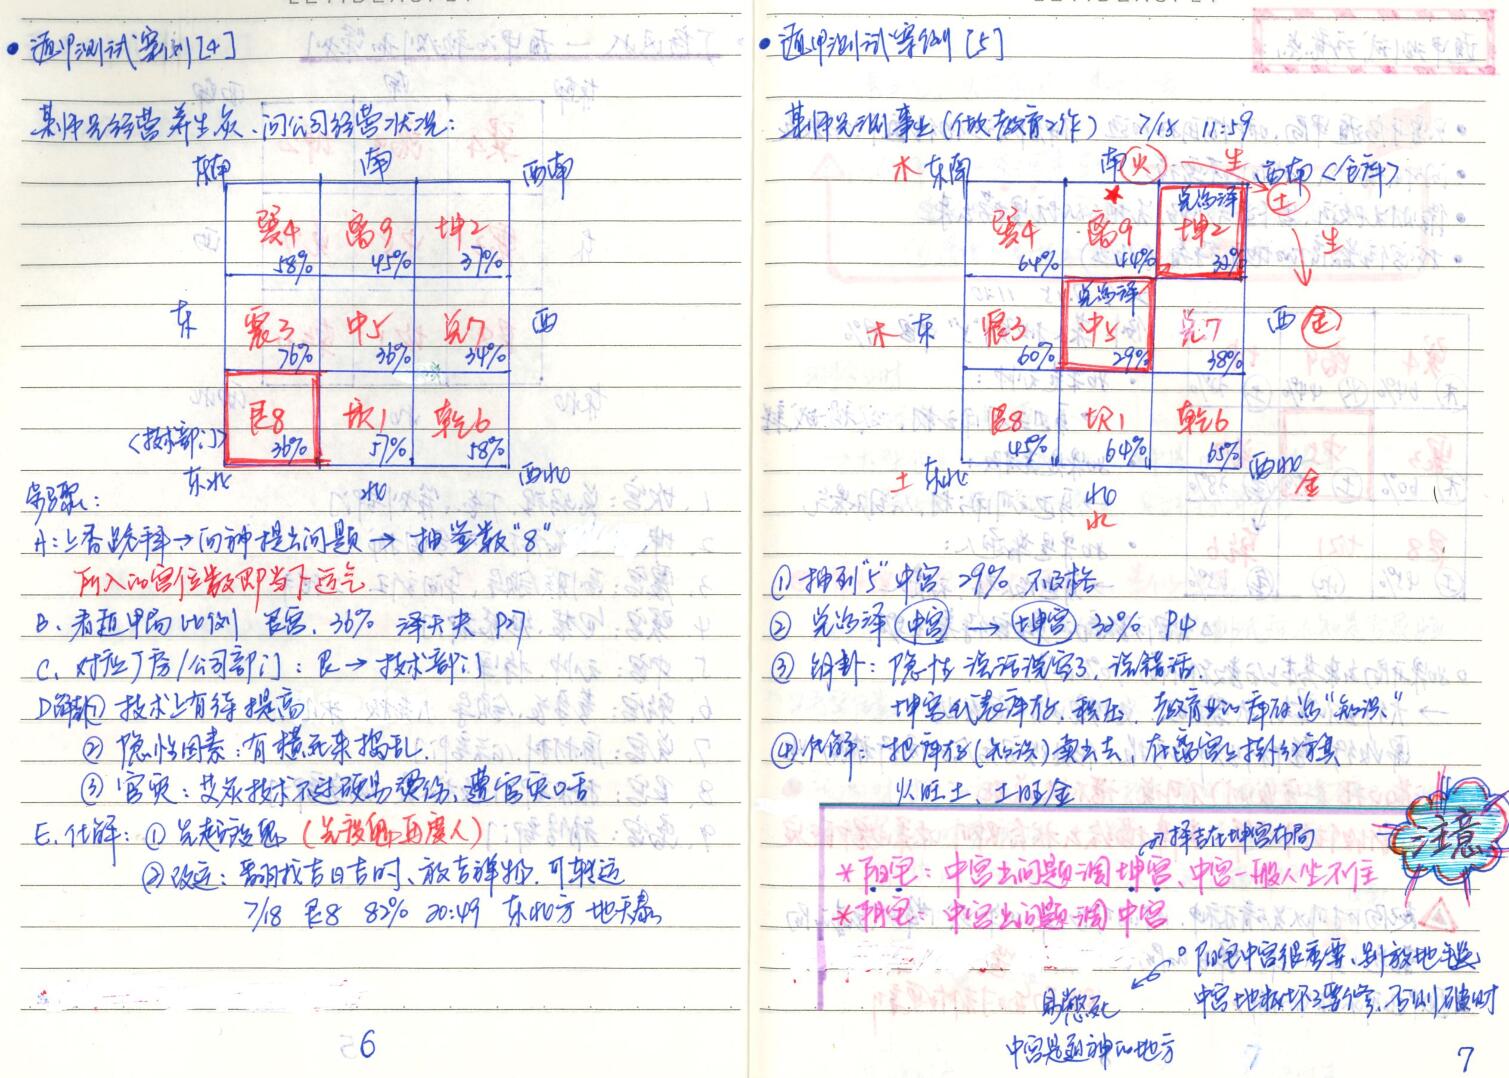 • 遁甲测试案例[4]
某师兄经营养生灸、问公司经营状况:
东南 南 西南
巽4 离9 坤2
58% 45% 37%
东 西
震3 中5 兑7
76% 36% 34%
<技术部门>
艮8 坎1 乾6
36% 57% 58%
东北 北 西北
步骤:
A:上香跪拜→向神提出问题→抽签数"8"
所入的宫位数即当下运气
B、看遁甲局比例 艮宫、36% 泽天夬 P27
C、对应厂房/公司部门:艮→技术部门
D解析① 技术上有待提高
② 隐性因素:有横死来捣乱.
③ 官灾:艾灸技术不过硬易烫伤、遭官灾口舌
E、化解:① 先超渡鬼(先渡鬼再度人)
② 改运:翻找吉日吉时、放吉祥物.可转运
7/18 艮8 82% 20:49 东北方 地天泰
6
• 遁甲测试案例[5]
某师兄测事业(做教育工作) 7/18 11:59
木 东南 南 火 生 西南<仓库> 土
兑为泽
巽4 离9 坤2
64% 44% 32%
生
兑为泽
木 东 西 金
震3 中5 兑7
60% 29% 38%
艮8 坎1 乾6
45% 64% 65%
土 东北 北 西北 金
水
① 抽到"5"中宫 29% 不及格
② 兑为泽 中宫→坤宫 32% P4
③ 细卦:隐性 说话说穿了,说错话.
坤宫代表库存、积压、教育业的库存为"知识"
④ 化解:把库存(知识)卖出去,在离宫上挂
火旺土、土旺金
择吉在坤宫布局
*阳宅:中宫出问题调坤宫、中宫一般人坐不住
*阴宅:中宫出问题调中宫
注意
阳宅中宫很重要、别放地毯
易憋死 中宫地板坏了要修、否则破财
中宫是通神的地方
7